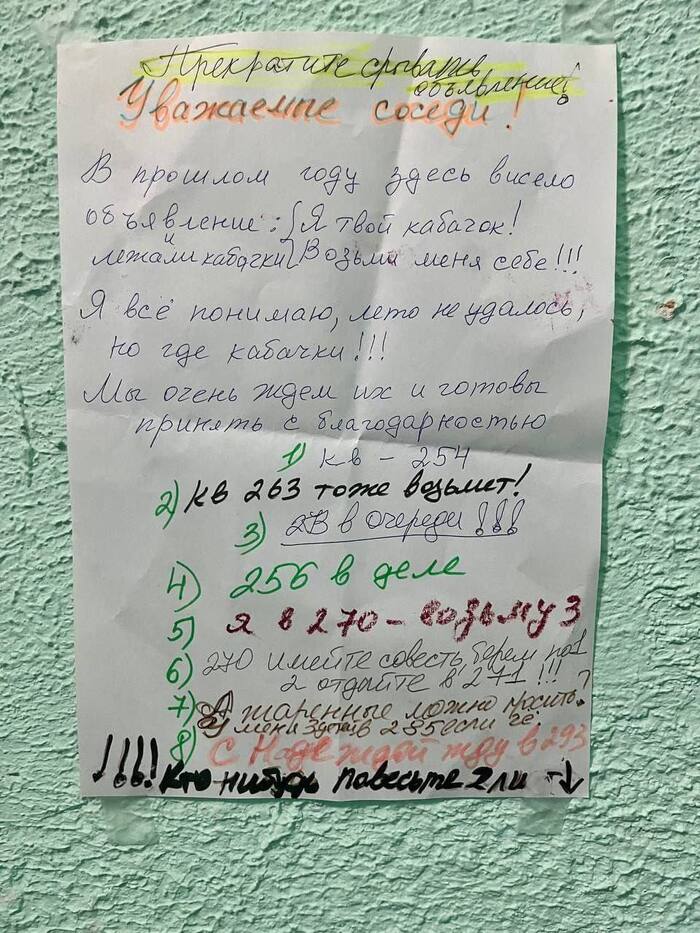 Прекратите срывать
объявление!
Уважаемые соседи!
В прошлом году здесь висело
объявление: Я твой кабачок!
и
лежали кабачки Возьми меня себе!!!
Я всё понимаю, лето не удалось,
но где кабачки!!!
Мы очень ждем их и готовы
принять с благодарностью
1) кв - 254
2) кв 263 тоже возьмет!
3) 2В в очереди!!!
4) 256 в деле
5) я в 270 - возьму 3
6) 270 имейте совесть, берем по 1
2 отдайте в 271!!!
7) А жаренные можно просить?
У меня в 285 если чё
8) С Надеждой жду в 293
!!!! Кто нибудь повесьте 2 ли